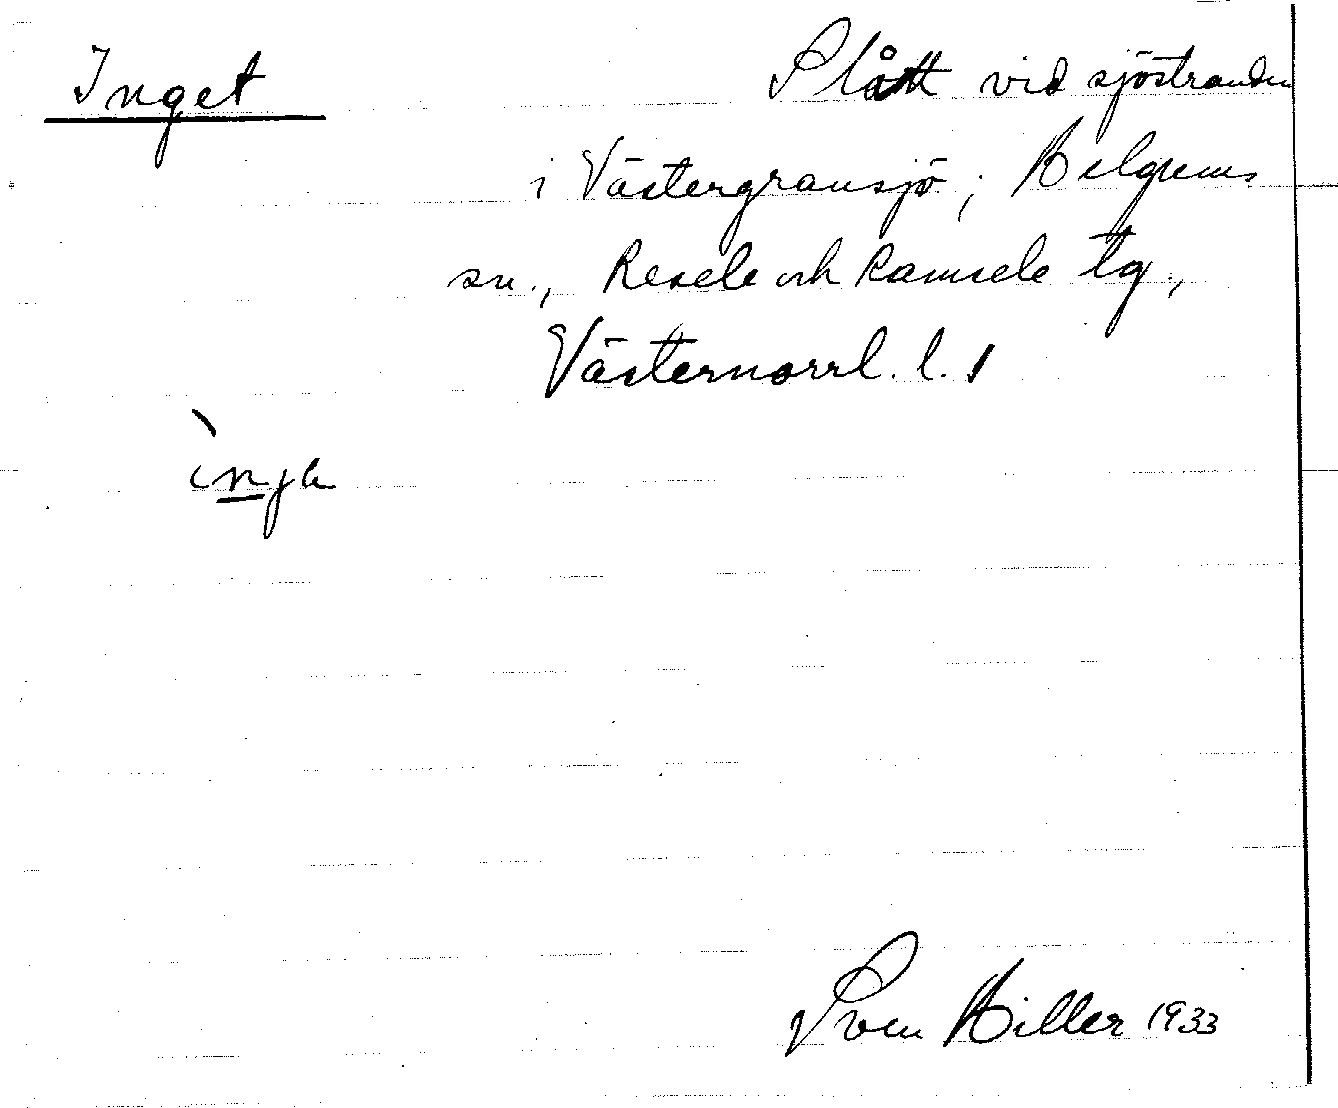 Inget
Slått vid sjöstranden
i Västergransjö, Helgums
sn., Resele och Ramsele tg.,
Västernorrl. l.
ìnja
Sven Hiller 1933